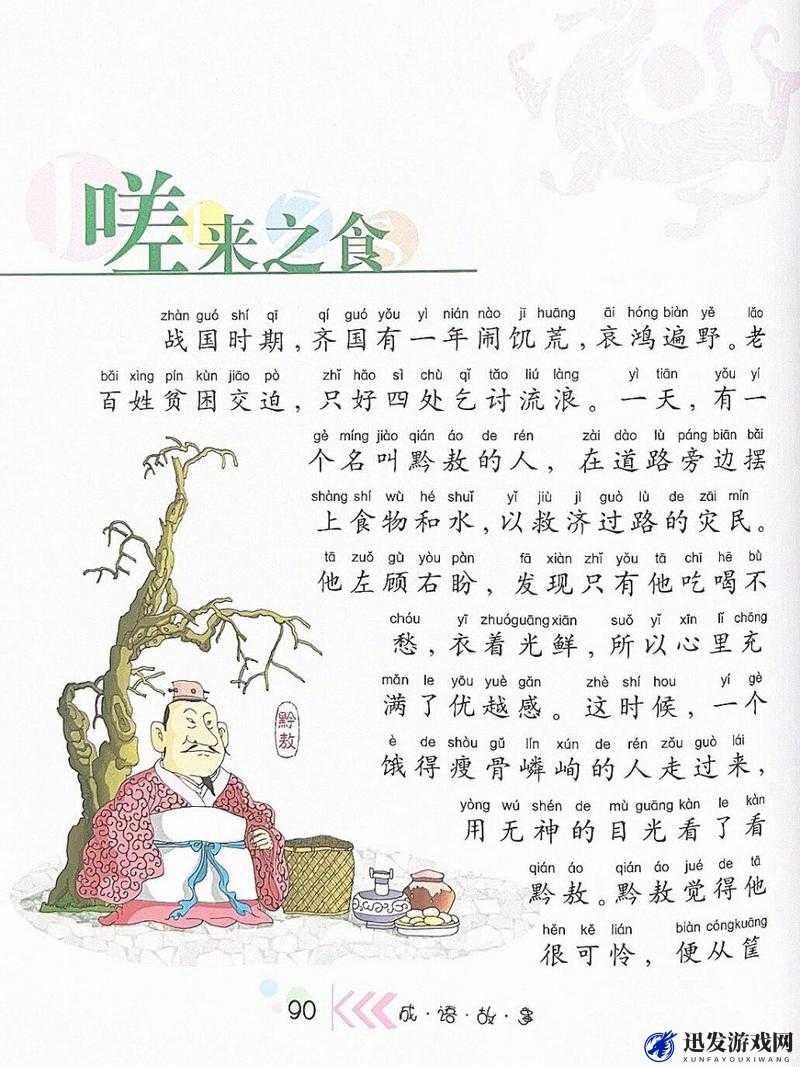 嗟来之食
zhàn guó shí qī qí guó yǒu yì nián nào jī huāng āi hóng biàn yě lǎo
战国时期，齐国有一年闹饥荒，哀鸿遍野。老
bǎi xìng pín kùn jiāo pò zhǐ hǎo sì chù qǐ tǎo liú làng yì tiān yǒu yí
百姓贫困交迫，只好四处乞讨流浪。一天，有一
gè míng jiào qián áo de rén zài dào lù páng biān bǎi
个名叫黔敖的人，在道路旁边摆
shàng shí wù hé shuǐ yǐ jiù jì guò lù de zāi mín
上食物和水，以救济过路的灾民。
tā zuǒ gù yòu pàn fā xiàn zhǐ yǒu tā chī hē bù
他左顾右盼，发现只有他吃喝不
chóu yī zhuó guāng xiān suǒ yǐ xīn lǐ chōng
愁，衣着光鲜，所以心里充
mǎn le yōu yuè gǎn zhè shí hou yí gè
满了优越感。这时候，一个
è de shòu gǔ lín xún de rén zǒu guò lái
饿得瘦骨嶙峋的人走过来，
yòng wú shén de mù guāng kàn le kàn
用无神的目光看了看
qián áo qián áo jué de tā
黔敖。黔敖觉得他
hěn kě lián biàn cóng kuāng
很可怜，便从筐
黔敖
90
成·语·故·事
迅发游戏网
XUNFAYOUXIWANG